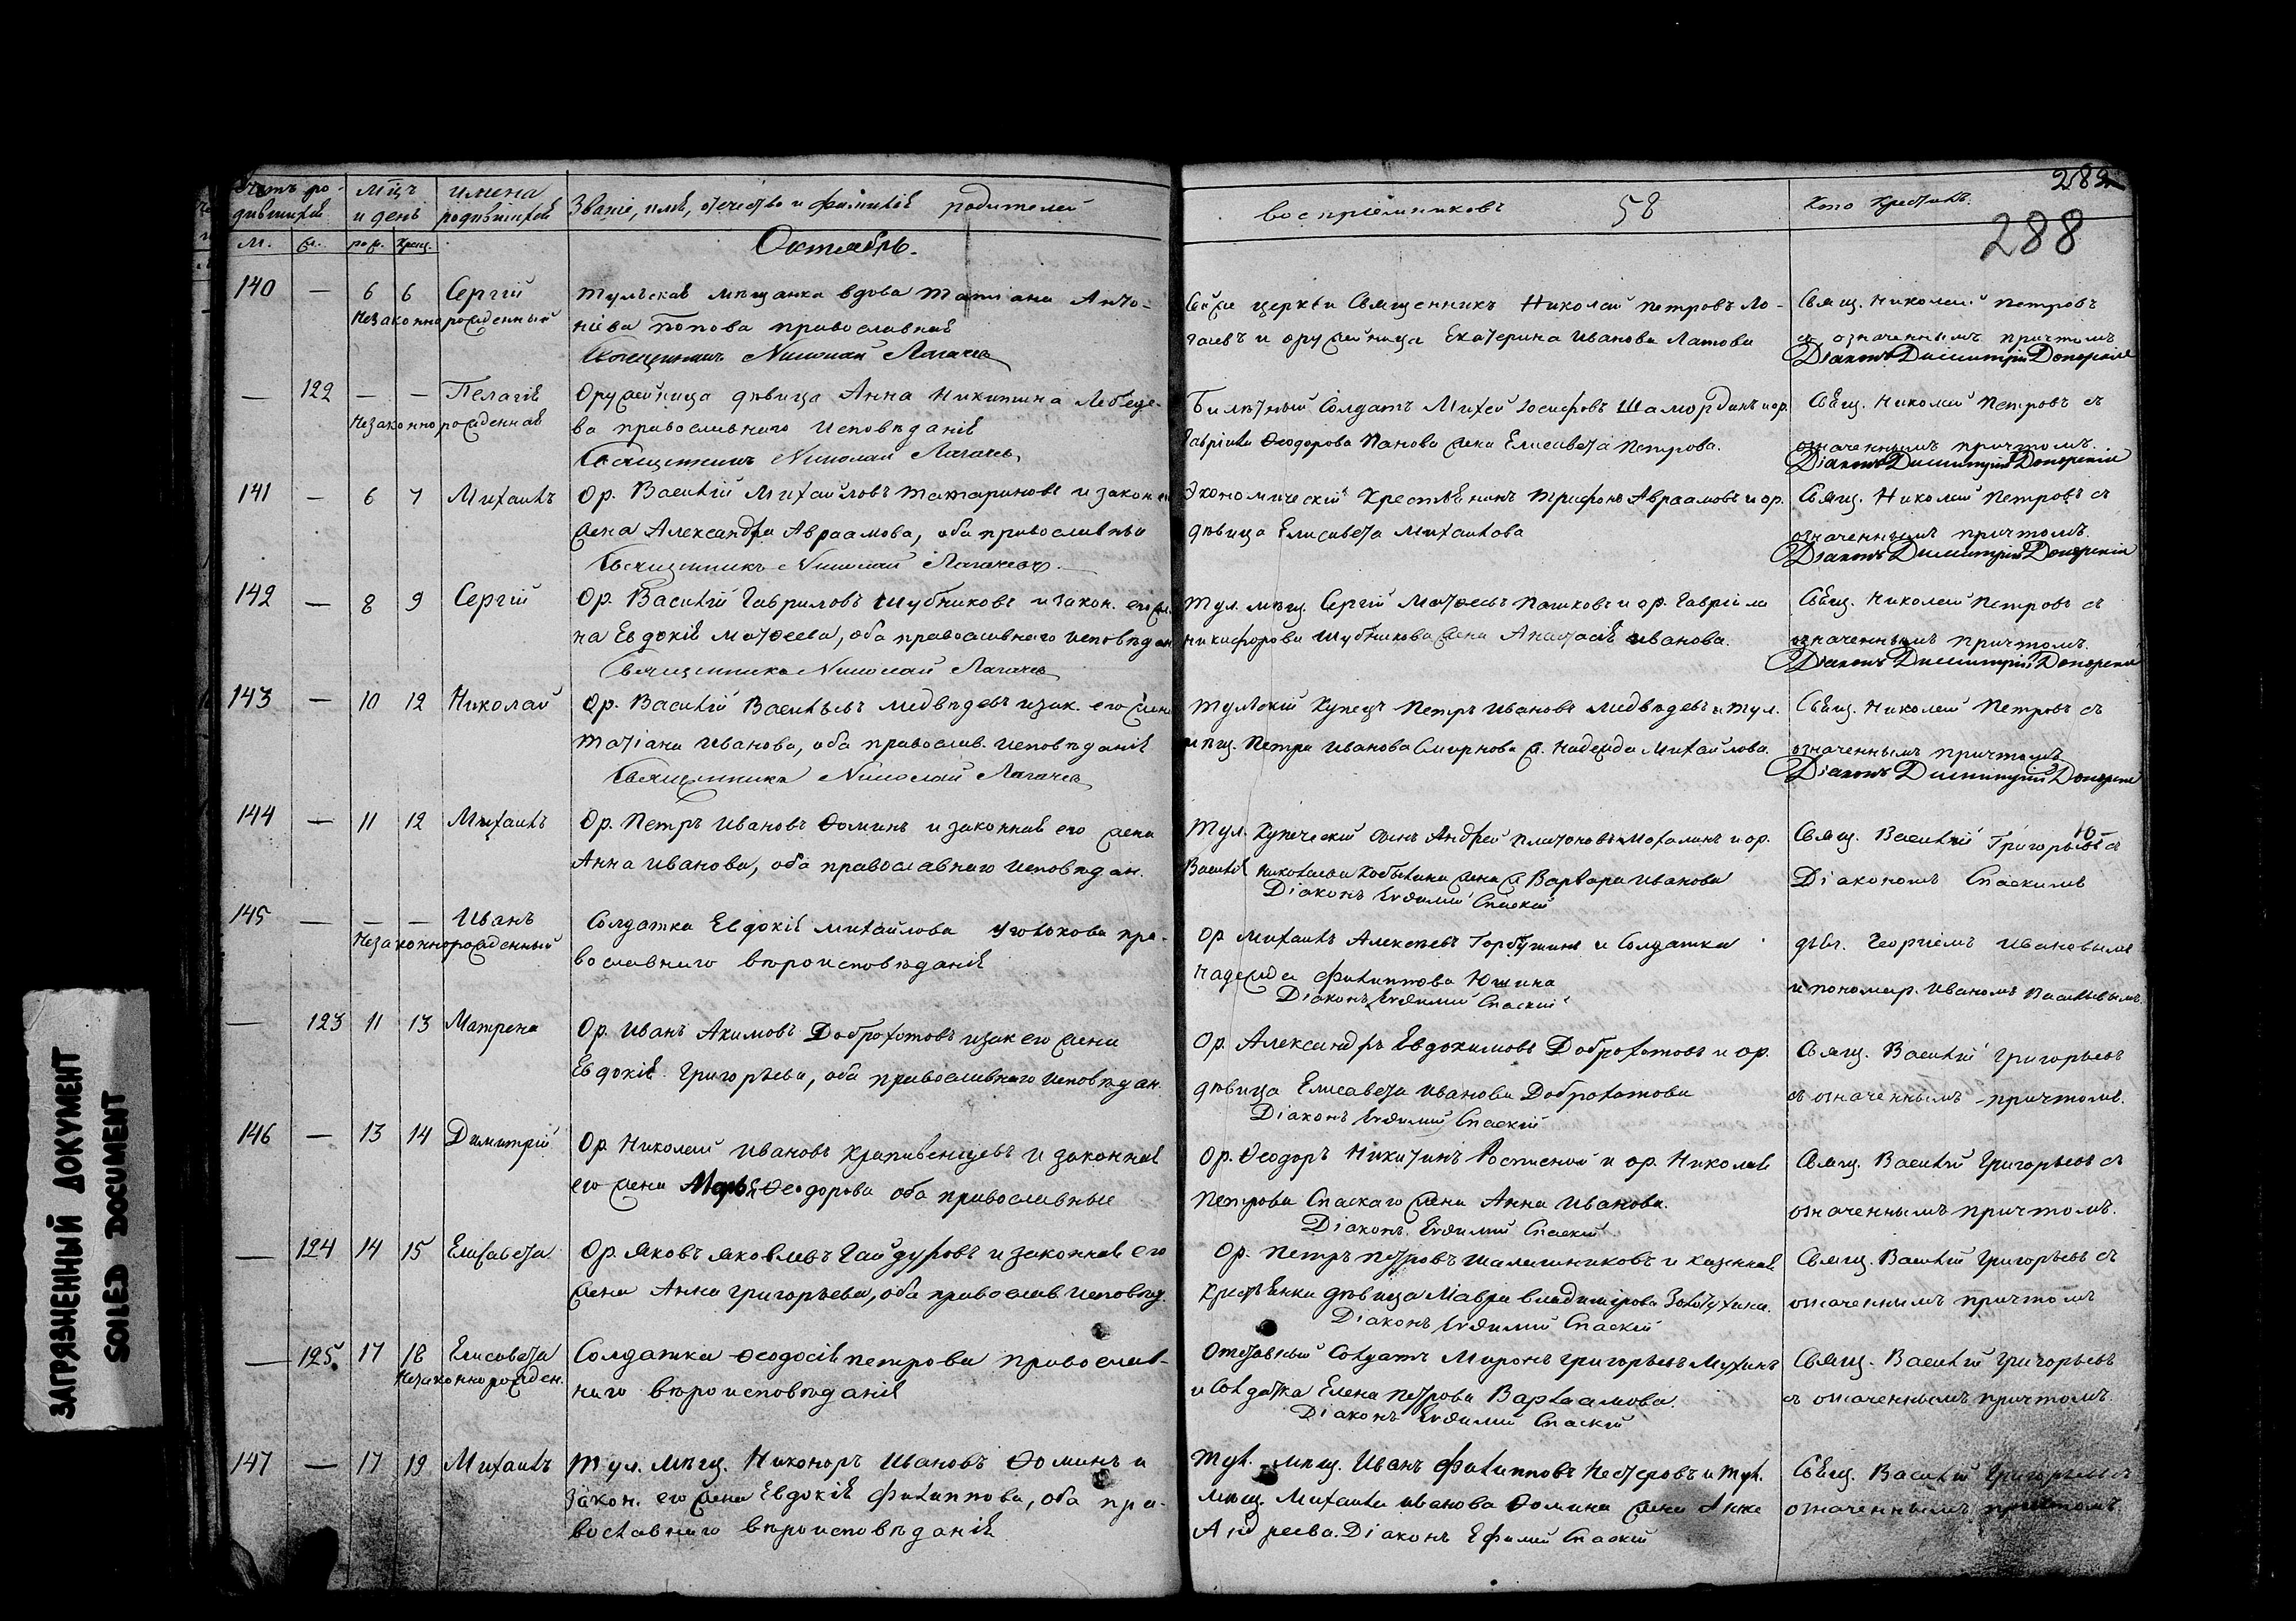 Счетъ ро- мѣц. имена Званіе, имя, отечество и фамилія родителей
дившихся и день родившихся
м. ж. рож. крещ.
Октябрь.
140 — 6 6 Сергій Тульская мѣщанка вдова Татіана Анто-
Незаконнорожденный нова Попова православная
Священникъ Николай Лагачевъ
— 122 — — Пелагія Оружейница дѣвица Анна Никитина Лебеде-
Незаконнорожденная ва православнаго исповѣданія
Священникъ Николай Лагачевъ
141 — 6 7 Михаилъ Ор. Василій Михайловъ Татариновъ и закон. его
жена Александра Авраамова, оба православные
Священникъ Николай Лагачевъ
142 — 8 9 Сергій Ор. Василій Гавриловъ Шубниковъ и закон. его же-
на Евдокія Матѳеева, оба православнаго исповѣдан.
Священникъ Николай Лагачевъ
143 — 10 12 Николай Ор. Василій Васильевъ Медвѣдевъ и зак. его жена
Татіана Иванова, оба православ. исповѣданія
Священникъ Николай Лагачевъ
144 — 11 12 Михаилъ Ор. Петръ Ивановъ Ѳоминъ и законная его жена
Анна Иванова, оба православнаго исповѣдан.
145 — — — Иванъ Солдатка Евдокія Михайлова пра-
Незаконнорожденный вославнаго вѣроисповѣданія
— 123 11 13 Матрена Ор. Иванъ Акимовъ Доброхотовъ и зак его жена
Евдокія Григорьева, оба православнаго исповѣдан.
146 — 13 14 Димитрій Ор. Николай Ивановъ Крапивенцевъ и законная
его жена Марья Ѳеодорова оба православные
— 124 14 15 Елисавета Ор. Яковъ Яковлевъ Гайдуровъ и законная его
жена Анна Григорьева, оба православ. исповѣд.
— 125. 17 18 Елисавета Солдатка Ѳеодосія Петрова православ-
Незаконнорожден. наго вѣроисповѣданія
147 — 17 19 Михаилъ Тул. мѣщ. Никоноръ Ивановъ Ѳоминъ и
закон. его жена Евдокія Филиппова, оба пра-
вославнаго вѣроисповѣданія
282
воспріемниковъ 58 Кто крестилъ.
288
церкви Священникъ Николай Петровъ Ло- Свящ. Николай Петровъ
гачевъ и оружейница Екатерина Иванова Латова съ означеннымъ причтомъ
Діаконъ Димитрій Донорскій
Билетный Солдатъ Михей Іосифовъ Шамординъ и ор. Свящ. Николай Петровъ съ
Гавріила Ѳеодорова Панова жена Елисавета Петрова. означеннымъ причтомъ.
Діаконъ Димитрій Донорскій
Экономическій крестьянинъ Трифонъ Авраамовъ и ор. Свящ. Николай Петровъ съ
дѣвица Елисавета Михаилова означеннымъ причтомъ.
Діаконъ Димитрій Донорскій
Тул. мѣщ. Сергій Матѳеевъ Пашковъ и ор. Гавріила Свящ. Николай Петровъ съ
Никифорова Шубникова жена Анастасія Иванова. означеннымъ причтомъ.
Діаконъ Димитрій Донорскій
Тульскій Купецъ Петръ Ивановъ Медвѣдевъ и Тул. Свящ. Николай Петровъ съ
мѣщ. Петра Иванова Смирнова ж. Надежда Михайлова. означеннымъ причтомъ
Діаконъ Димитрій Донорскій
Тул. Купеческій сынъ Андрей Платоновъ Моталинъ и ор. Свящ. Василій Григорьевъ съ
Василія Николаева Кобылина жена Варвара Иванова Діакономъ Спаскимъ
Діаконъ Евѳимій Спаскій
Ор Михаилъ Алексѣевъ Горбушинъ и Солдатка дьяч. Георгіемъ Ивановымъ
Надежда Филиппова Юшина и пономар. Иваномъ Васильевымъ.
Діаконъ Евѳимій Спаскій
Ор. Александръ Евдокимовъ Доброхотовъ и ор. Свящ. Василій Григорьевъ
дѣвица Елисавета Иванова Доброхотова съ означеннымъ причтомъ.
Діаконъ Евѳимій Спаскій
Ор. Ѳеодоръ Никитинъ Росписной и ор. Николая Свящ. Василій Григорьевъ съ
Петрова Спаскаго жена Анна Иванова. означеннымъ причтомъ.
Діаконъ Евѳимій Спаскій
Ор. Петръ Петровъ Шалашниковъ и казенная Свящ. Василій Григорьевъ съ
крестьянка дѣвица Мавра Владимірова Золотухина. означеннымъ причтомъ
Діаконъ Евѳимій Спаскій
Отставный Солдатъ Миронъ Григорьевъ Мухинъ Свящ. Василій Григорьевъ
и Солдатка Елена Петрова Варлаамова. съ означеннымъ причтомъ.
Діаконъ Евѳимій Спаскій
Тул. мѣщ. Иванъ Филипповъ Нестеровъ и тул. Свящ. Василій Григорьевъ съ
мѣщ. Михаила Иванова Ѳомина жена Анна означеннымъ причтомъ.
Андреева. Діаконъ Ефимій Спаскій
ЗАГРЯЗНЕННЫЙ ДОКУМЕНТ
SOILED DOCUMENT